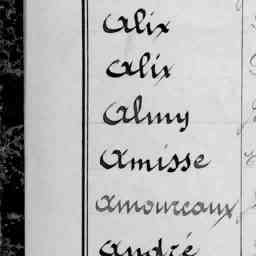 Alix
Alix
Almy
Amisse
Amoureaux
André